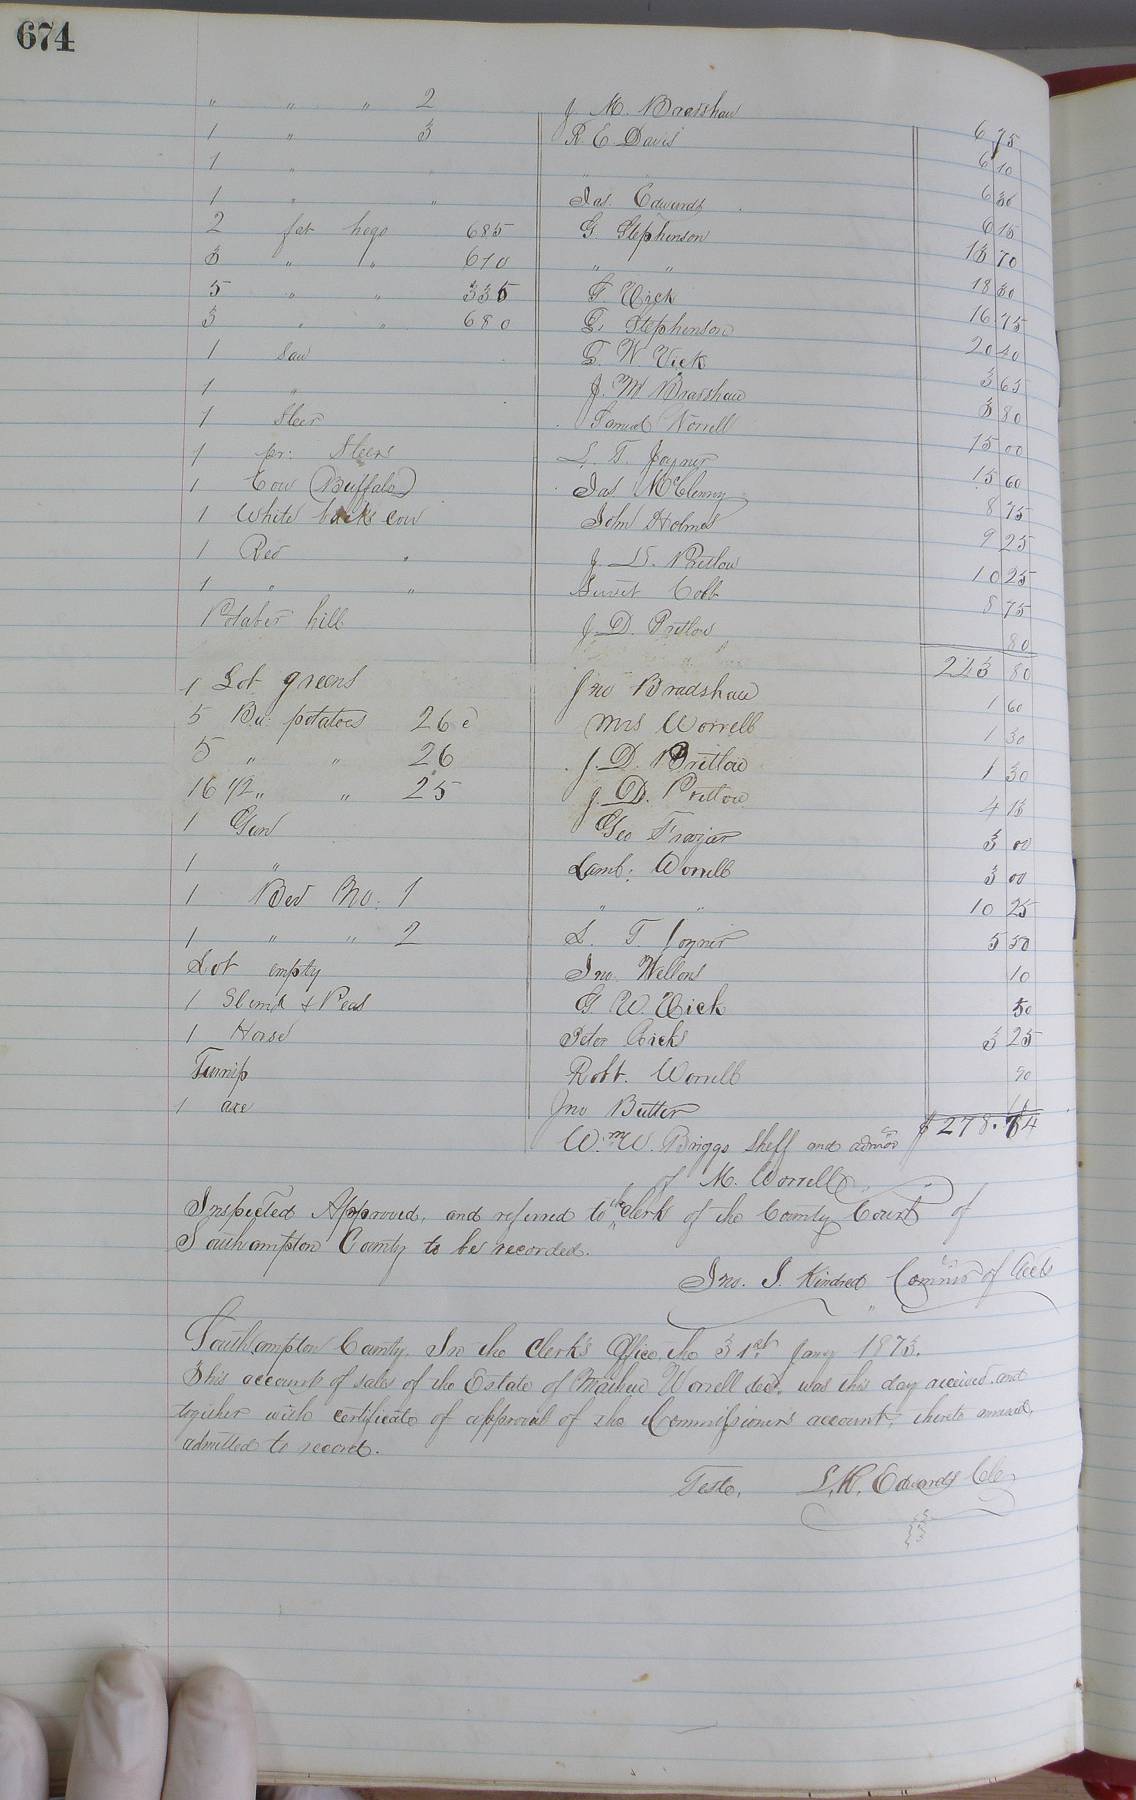 674
" " " 2 J M. Bradshaw 6 75
1 " 3 R. E. Davis 6 10
1 " " " " 6 30
1 " " Jas. Edwards 6 15
2 fat hogs 685 G. Stephenson 13 70
3 " " 610 " " 18 30
5 " " 335 G. Vick 16 75
3 " " 680 G. Stephenson 20 40
1 Sow G. W. Vick 3 65
1 " J. M Bradshaw 3 80
1 Steer Samuel Worrell 15 00
1 pr: Steers L. T. Joyner 15 60
1 Cow (Buffalo) Jas McClenny 8 75
1 White back cow John Holmes 9 25
1 Red " J. D. Pretlow 10 25
1 " " Cobb 8 75
Potater hill J. D. Pretlow 80
243 80
1 Lot greens Jno Bradshaw 1 60
5 Bu: potatoes 26 c Mrs Worrell 1 30
5 " " 26 J. D. Pretlow 1 30
16 1/2 " " 25 J. D. Pretlow 4 13
1 Gun Geo Frazier 3 00
1 " Lamb: Worrell 3 00
1 Bed No. 1 " " 10 25
1 " " 2 L. T. Joyner 5 50
Lot empty Jno. Wellons 10
1 & Peas G. W. Vick 50
1 Horse Peter Ricks 3 25
Turnip Robt. Worrell 20
1 axe Jno Butler 11
$278.74
Wm W. Briggs Sheff and admor
of M. Worrell
Inspected Approved, and referred to the clerk of the County Court of
Southampton County to be recorded.
Jno. J. Kindred Commr of Accts
Southampton County. In the Clerk's Office the 31st Jany 1873.
This account of sales of the Estate of Mathew Worrell decd. was this day received and
together with certificate of approval of the Commissioners account, thereto annexed,
admitted to record.
Teste, L. R. Edwards Clk